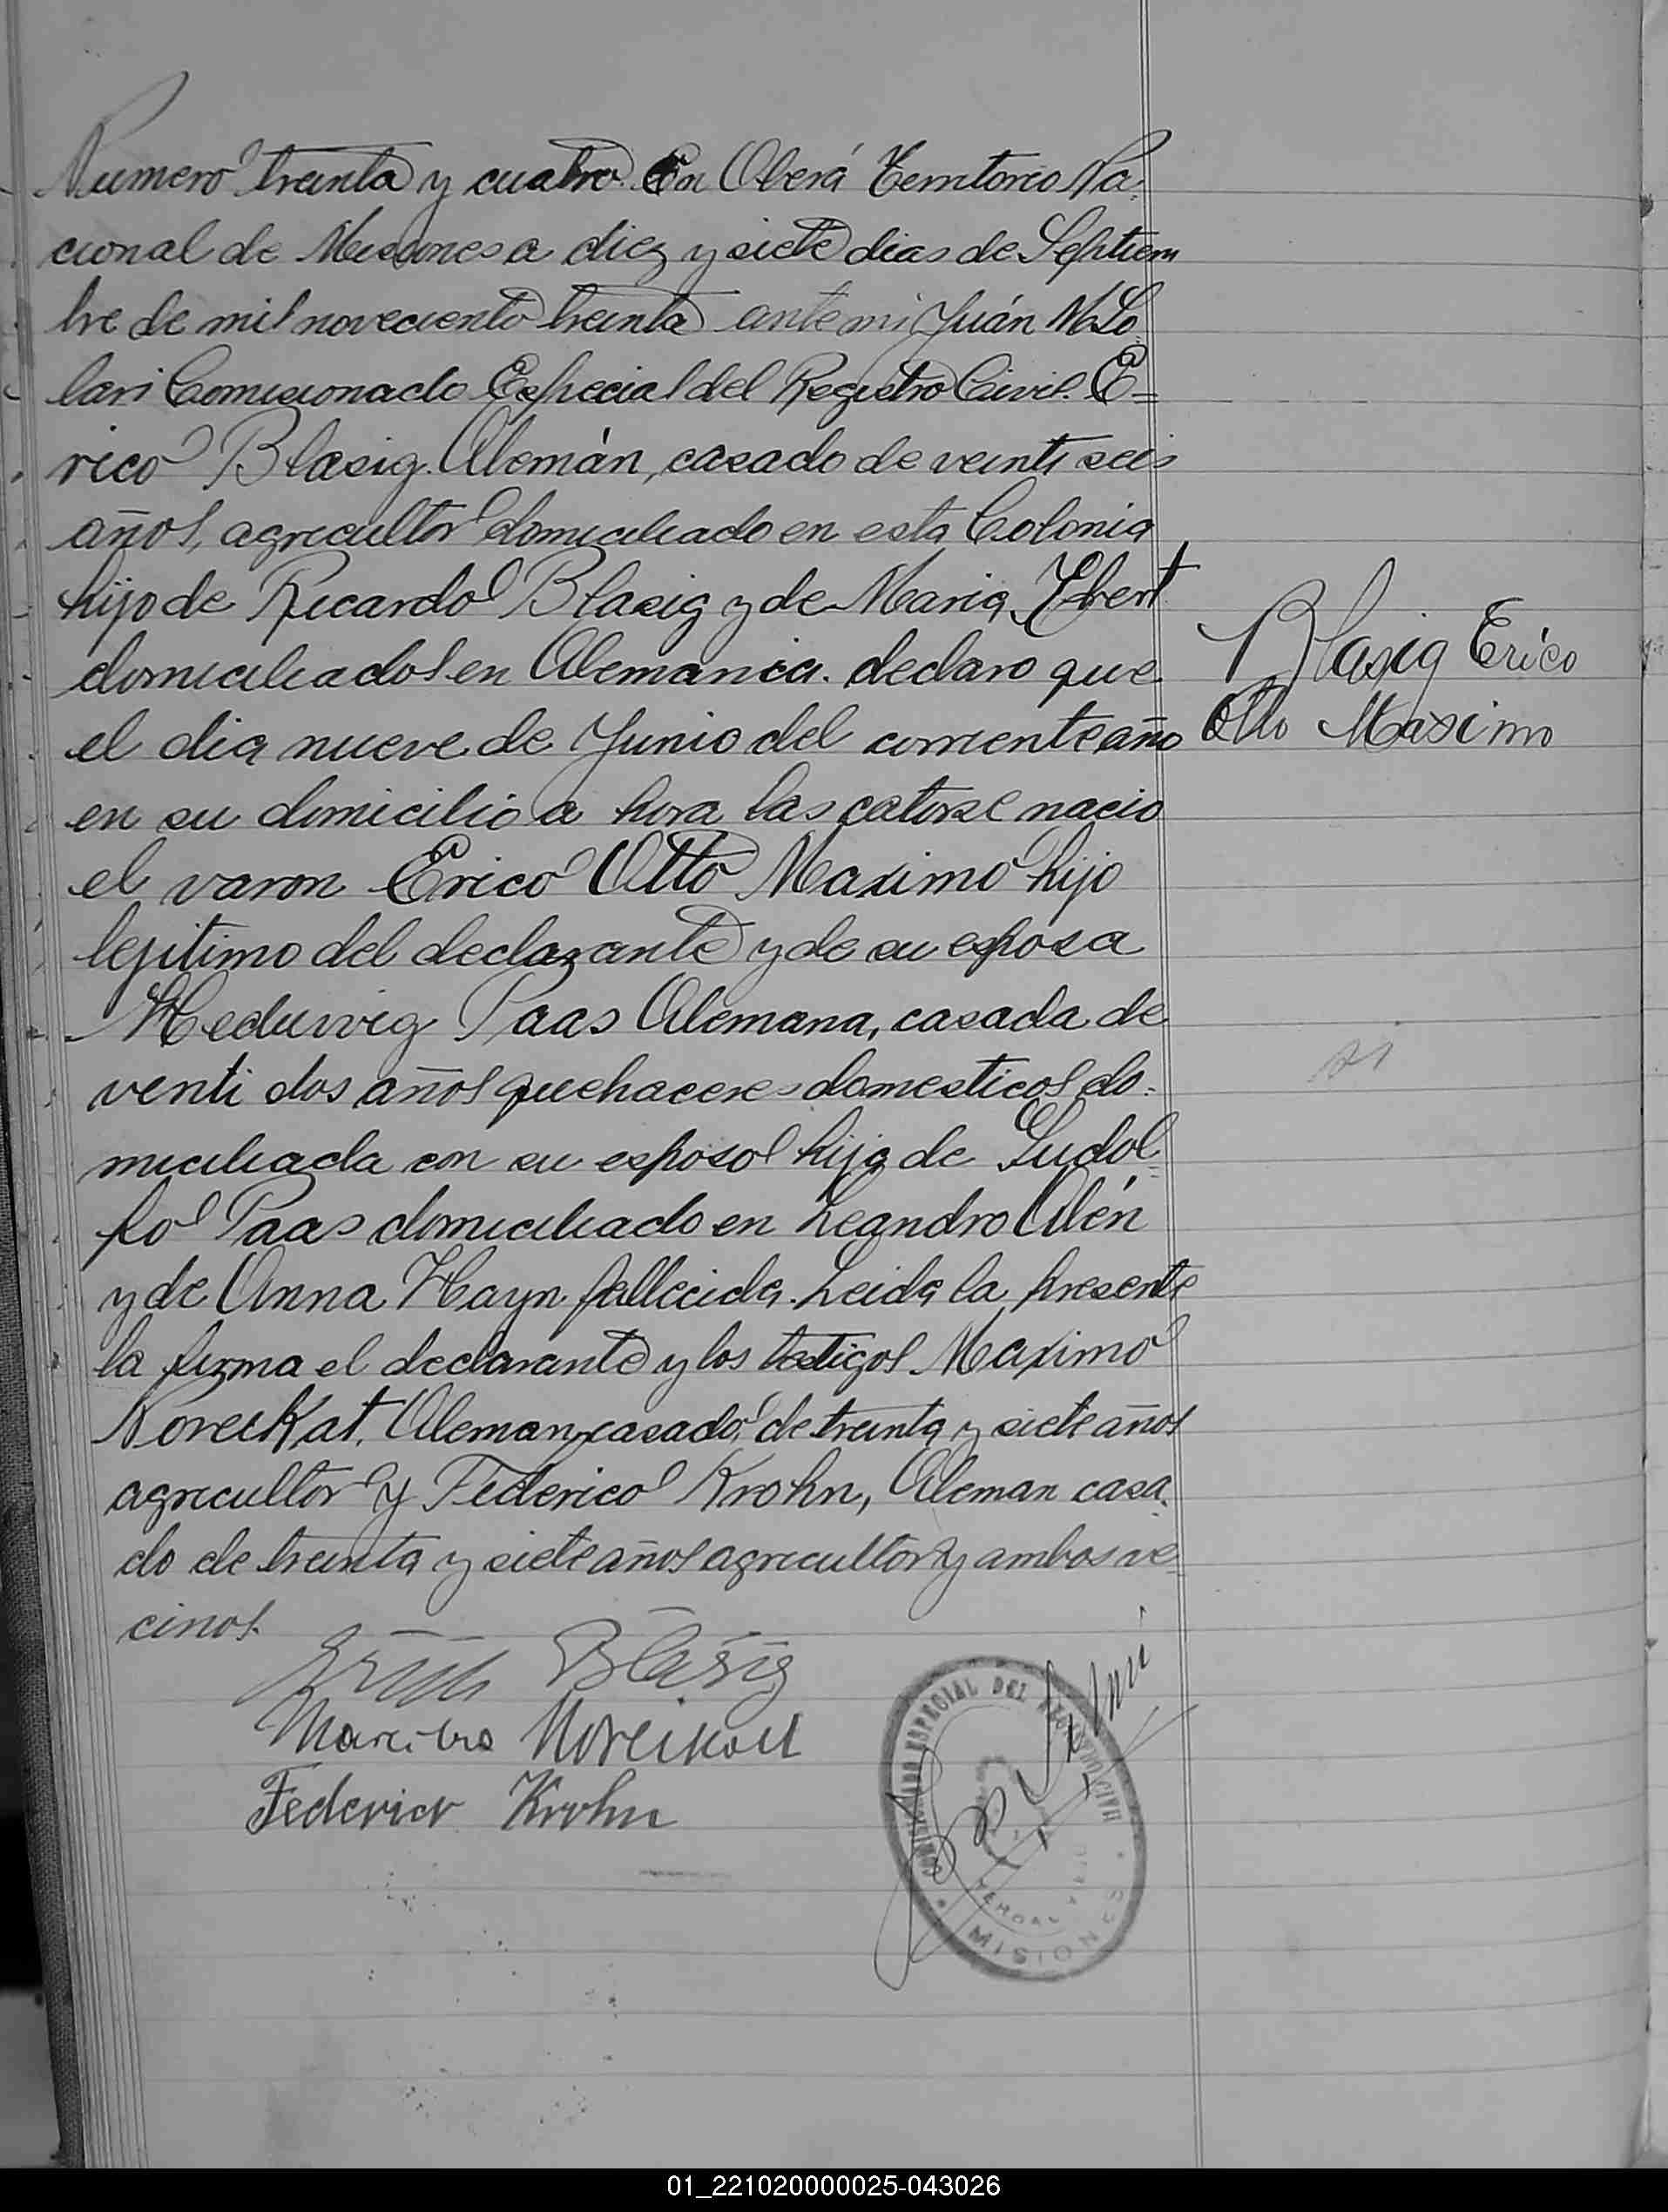 Numero treinta y cuatro. En Oberá Territorio Na-
cional de Misiones a diez y siete dias de Septiem
bre de mil noveciento treinta ante mi Juán M. So
lari Comisionado Especial del Registro Civil. E=
rico Blasig. Alemán, casado de veinti seis
años, agricultor domiciliado en esta Colonia
hijo de Ricardo Blasig y de Maria Ebert
domiciliados en Alemania. declaro que
el dia nueve de Junio del corriente año
en su domicilio a hora las catorse nacio
el varon Erico Otto Maximo hijo
legitimo del declarante y de su esposa
Heduwig Paas Alemana, casada de
venti dos años quehaceres domesticos do-
miciliada con su esposo hija de Ludol
fo Paas domiciliado en Leandro Alén
y de Anna Hayn fallecida. Leida la presente
la firma el declarante y los testigos Maximo
Noreikat, Aleman, casado, de treinta y siete años
agricultor y Federico Krohn, Aleman casa-
do de treinta y siete años agricultor y ambos ve
cinos.
Blasig Erico
Otto Maximo
Erich Blasig
Noreikat
Federico Krohn
ESPECIAL DEL REGISTRO CIVIL
MISIONES
01_221020000025-043026